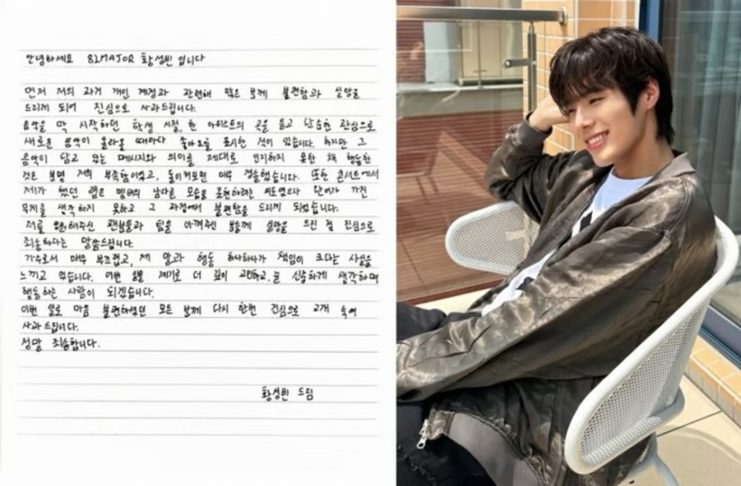 안녕하세요 82MAJOR 황성빈 입니다
먼저 저의 과거 개인 계정과 관련해 많은 분께 불편함과 실망을
드리게 되어 진심으로 사과드립니다.
음악을 막 시작하던 학생 시절, 한 아티스트의 곡을 듣고 단순한 관심으로
새로운 음악이 올라올 때마다 좋아요를 표시한 적이 있습니다. 하지만 그
음악이 담고 있는 메시지와 의미를 제대로 인지하지 못한 채 행동한
것은 분명 저의 부족함이었고, 돌이켜보면 매우 경솔했습니다. 또한 콘서트에서
제가 했던 랩은 멤버의 남다른 모습을 표현하려던 의도였으나 단어가 가진
무게를 생각하지 못하고 그 과정에서 불편함을 드리게 되었습니다.
저를 응원해주신 팬분들과 팀을 아껴주신 분들께 실망을 드린 점 진심으로
죄송하다는 말씀드립니다.
가수로서 매우 부족했고, 제 말과 행동 하나하나가 책임이 크다는 사실을
느끼고 있습니다. 이번 일을 계기로 더 깊이 고민하고, 늘 신중하게 생각하며
행동하는 사람이 되겠습니다.
이번 일로 마음 불편하셨던 모든 분께 다시 한번 진심으로 고개 숙여
사과드립니다.
정말 죄송합니다.
황성빈 드림